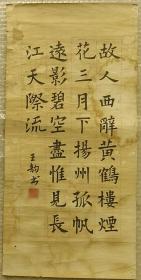 故人西辭黃鶴樓煙
花三月下揚州孤帆
遠影碧空盡惟見長
江天際流
王韵书